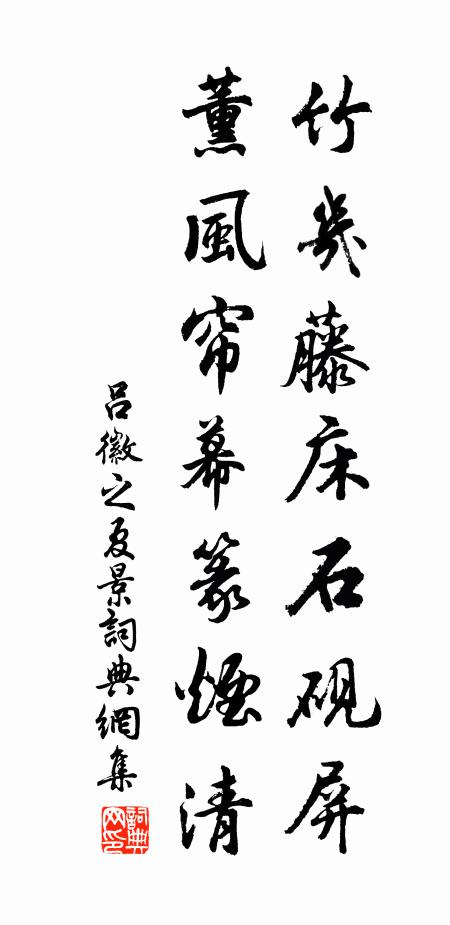 竹几藤床石砚屏
薰風帘幕篆煙清
吕徽之夏景詞典網集
詞典網印